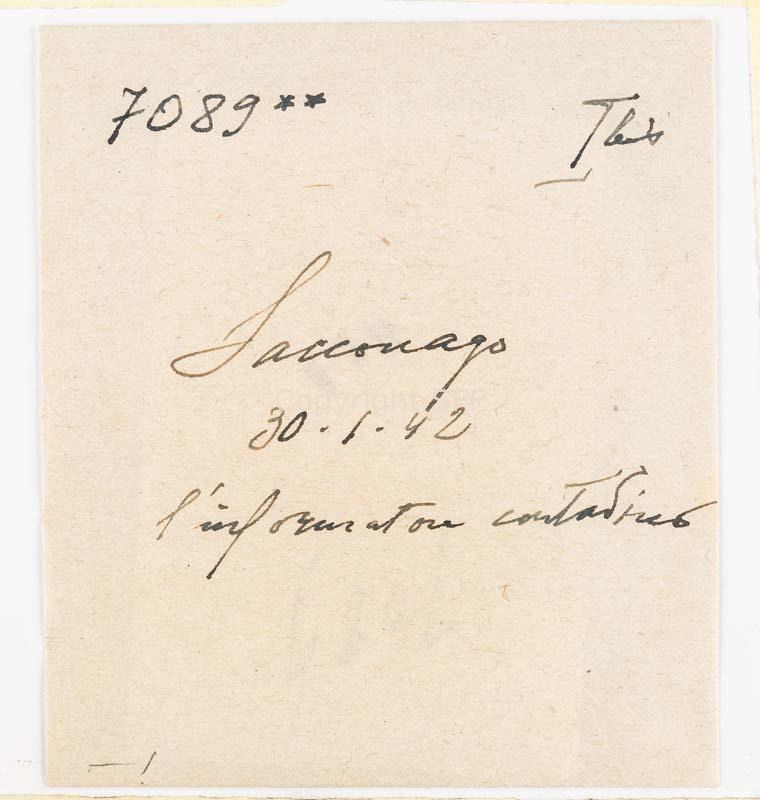 7089**
Sacconago
30.1.42
l'informatore contadino